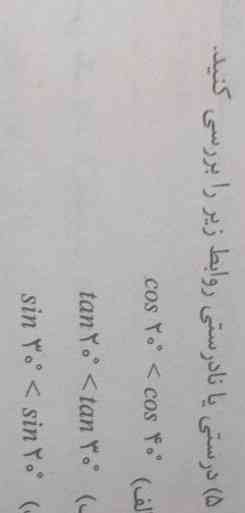 ۵) درستی یا نادرستی روابط زیر را بررسی کنید.
الف) cos ۲۰° < cos ۴۰°
ب) tan ۲۰° < tan ۳۰°
sin ۳۰° < sin ۲۰°